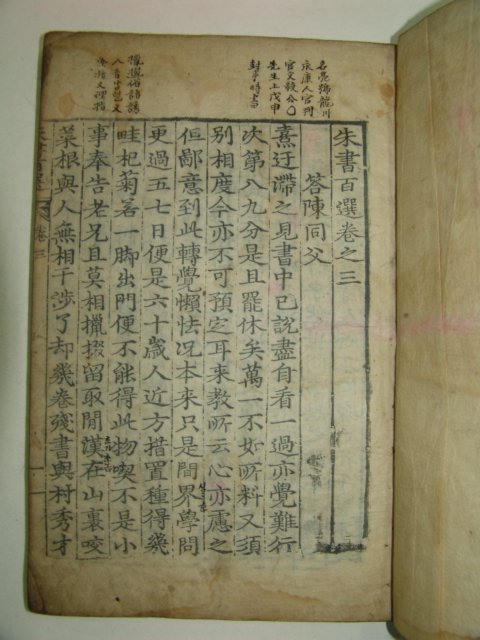 名亮號龍川
永康人官判
官文毅公〇
先生上戊申
封事時
攛掇俗語
朱書百選卷之三
答陳同父
熹迂滯之見書中已說盡自看一過亦覺難行
次第八九分是且罷休矣萬一不如所料又須
別相度今亦不可預定耳來教所云心亦慮之
但鄙意到此轉覺懶怯况本來只是間界學問
更過五七日便是六十歲人近方措置種得幾
畦杞菊若一脚出門便不能得此物喫不是小
事奉告老兄且莫相攛掇留取閒漢在山裏咬
菜根與人無相干涉了却幾卷殘書與村秀才
卷三